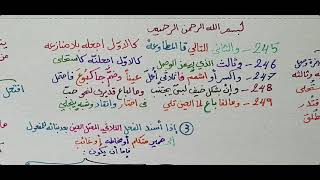 بسم الله الرحمن الرحيم
245 - والثاني التالي تا المطاوعة كالأول اجعله بلا منازعة
246 - وثالث الذي بهمز الوصل كالأول اجعلنه كاستحلي
247 - واكسر أو اشمم فا ثلاثي أعل عينا وضم جا كبوع فاحتمل
248 - وإن بشكل خيف لبس يجتنب وما لباع قد يرى لنحو حب
249 - وما لفا باع لما العين تلي في اختار وانقاد وشبه ينجلي
③ إذا أسند الفعل الثلاثي المعتل العين بعد بنائه للمفعول
إلى ضمير متكلم أو مخاطب أو غائب
فإما أن يكون: